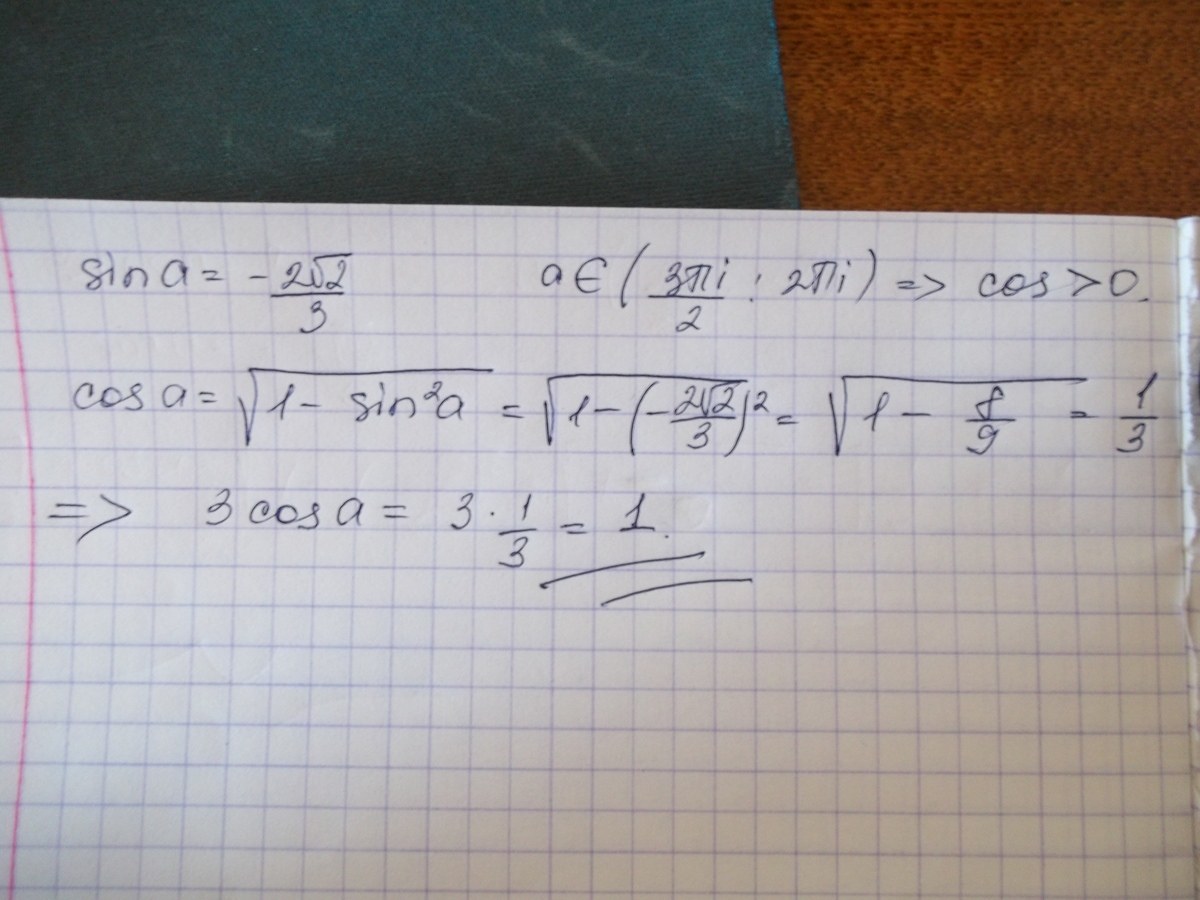 sin a = - 2√2/3 a ∈ (3πi/2 ; 2πi) => cos > 0.
cos a = √(1 - sin²a) = √(1 - (-2√2/3)²) = √(1 - 8/9) = 1/3
=> 3 cos a = 3 · 1/3 = 1.